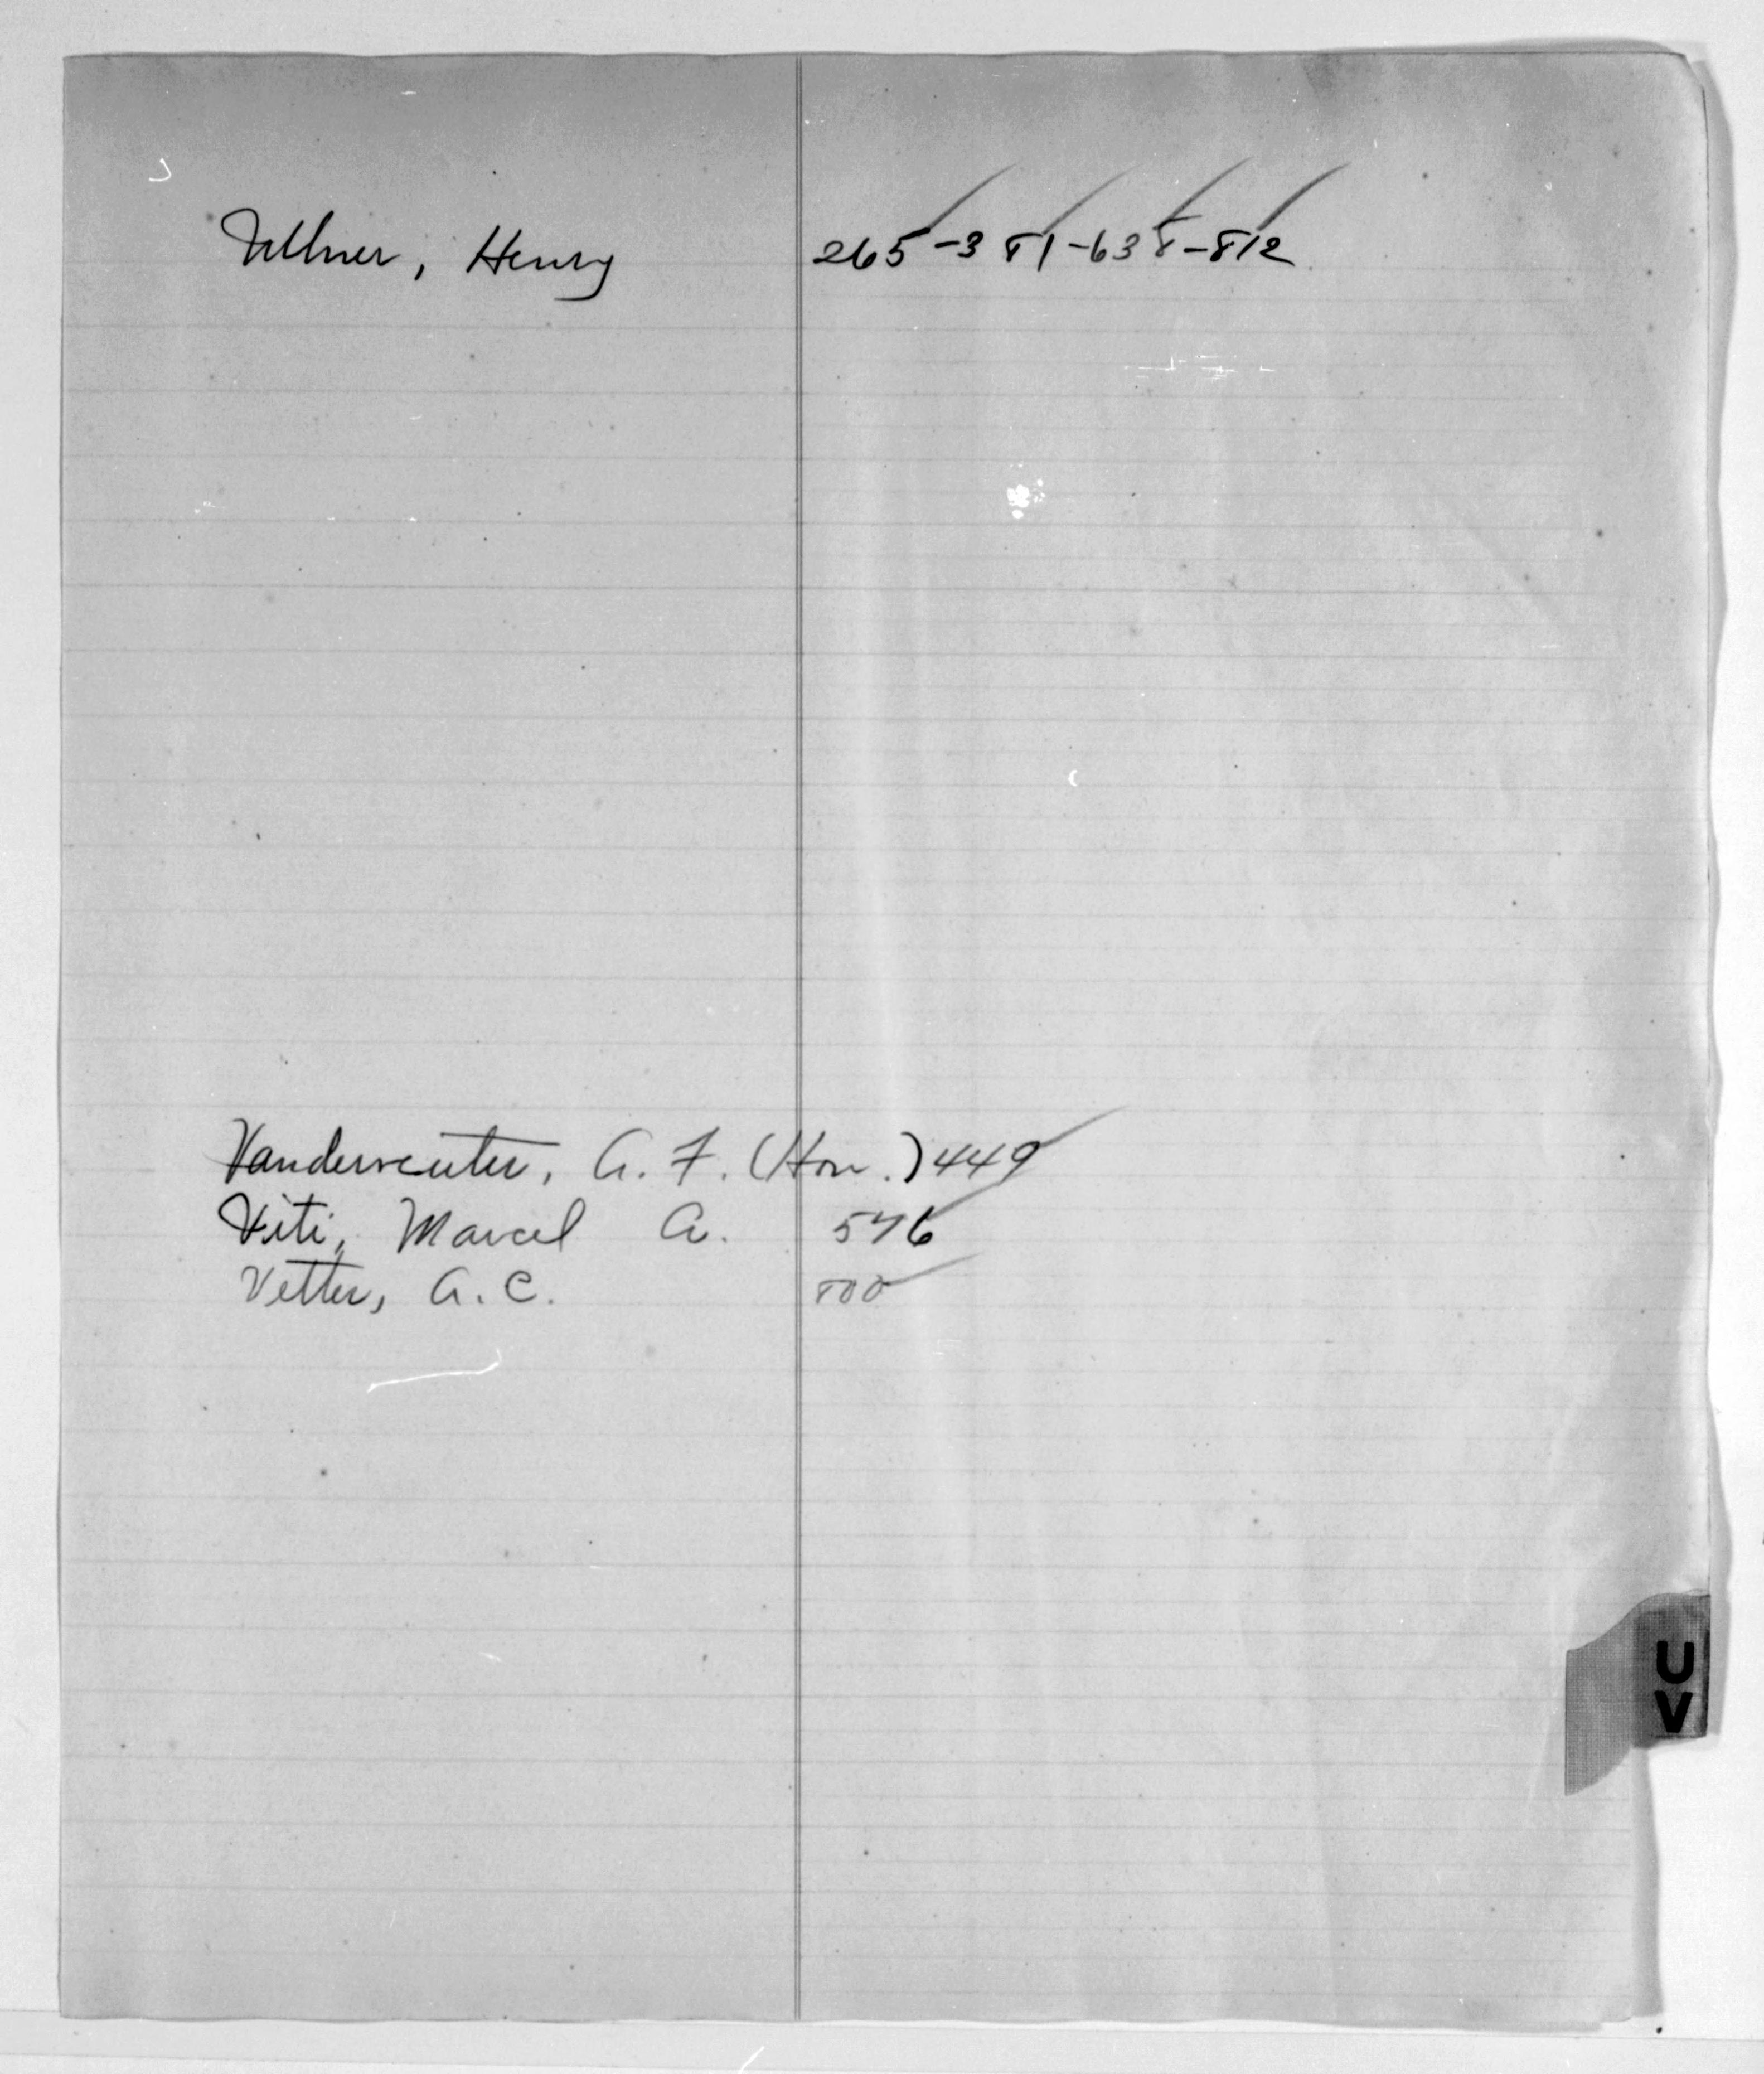 Ullner, Henry 265-381-638-812
Vanderventer, A. F. (Hon.) 449
Viti, Marcel A. 576
Vetter, A. C. 800
U
V